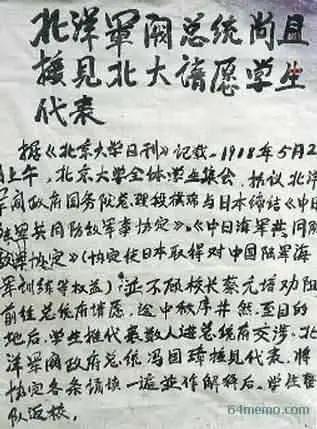 北洋軍阀总统尚且
接見北大请愿学生
代表
据《北京大学日刊》记载，1918年5月2
日上午，北京大学全体学生集会，抗议北洋
军阀政府国务院总理段祺瑞与日本缔结《中日
陆军共同防敌军事协定》、《中日海军共同防
敌军事协定》（协定使日本取得对中国陆军海
军训练等权益）并不顾校长蔡元培劝阻
前往总统府请愿，途中秩序井然，至目的
地后，学生推代表数人进总统府交涉，北
洋军阀政府总统冯国璋接见代表，将
协定各条请读一遍並作解释后，学生整
队返校。
64memo.com